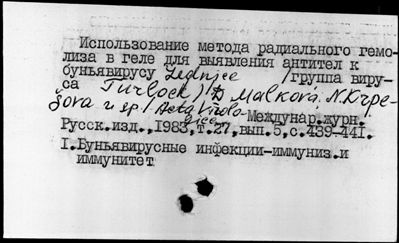 Использование метода радиального гемо-
лиза в геле для выявления антител к
буньявирусу Lednice /группа виру-
са Turlock/ D Malková, N.Krpe-
šova и др / Acta Virolo-
gica -Междунар.журн.
Русск.изд.,1983,т.27,вып.5,с.439-441.
I.Буньявирусные инфекции-иммуниз.и
иммунитет